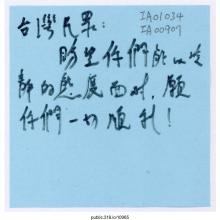 台灣民眾：
IA01034
IA00907
盼望你們能以冷
靜的態度面對，願
你們一切順利！
public.318.io/10965